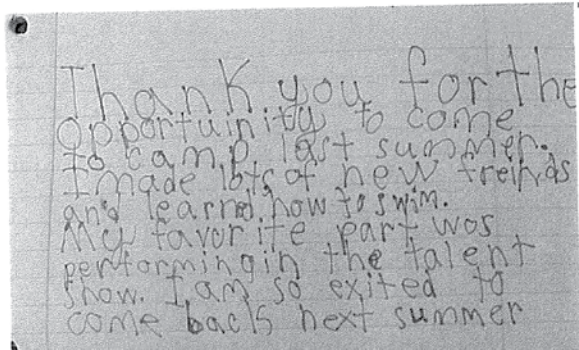 Thank you for the
opportuinity to come
to camp last summer.
I made lots of new freinds
and learned how to swim.
My favorite part was
performing in the talent
show. I am so exited to
come back next summer